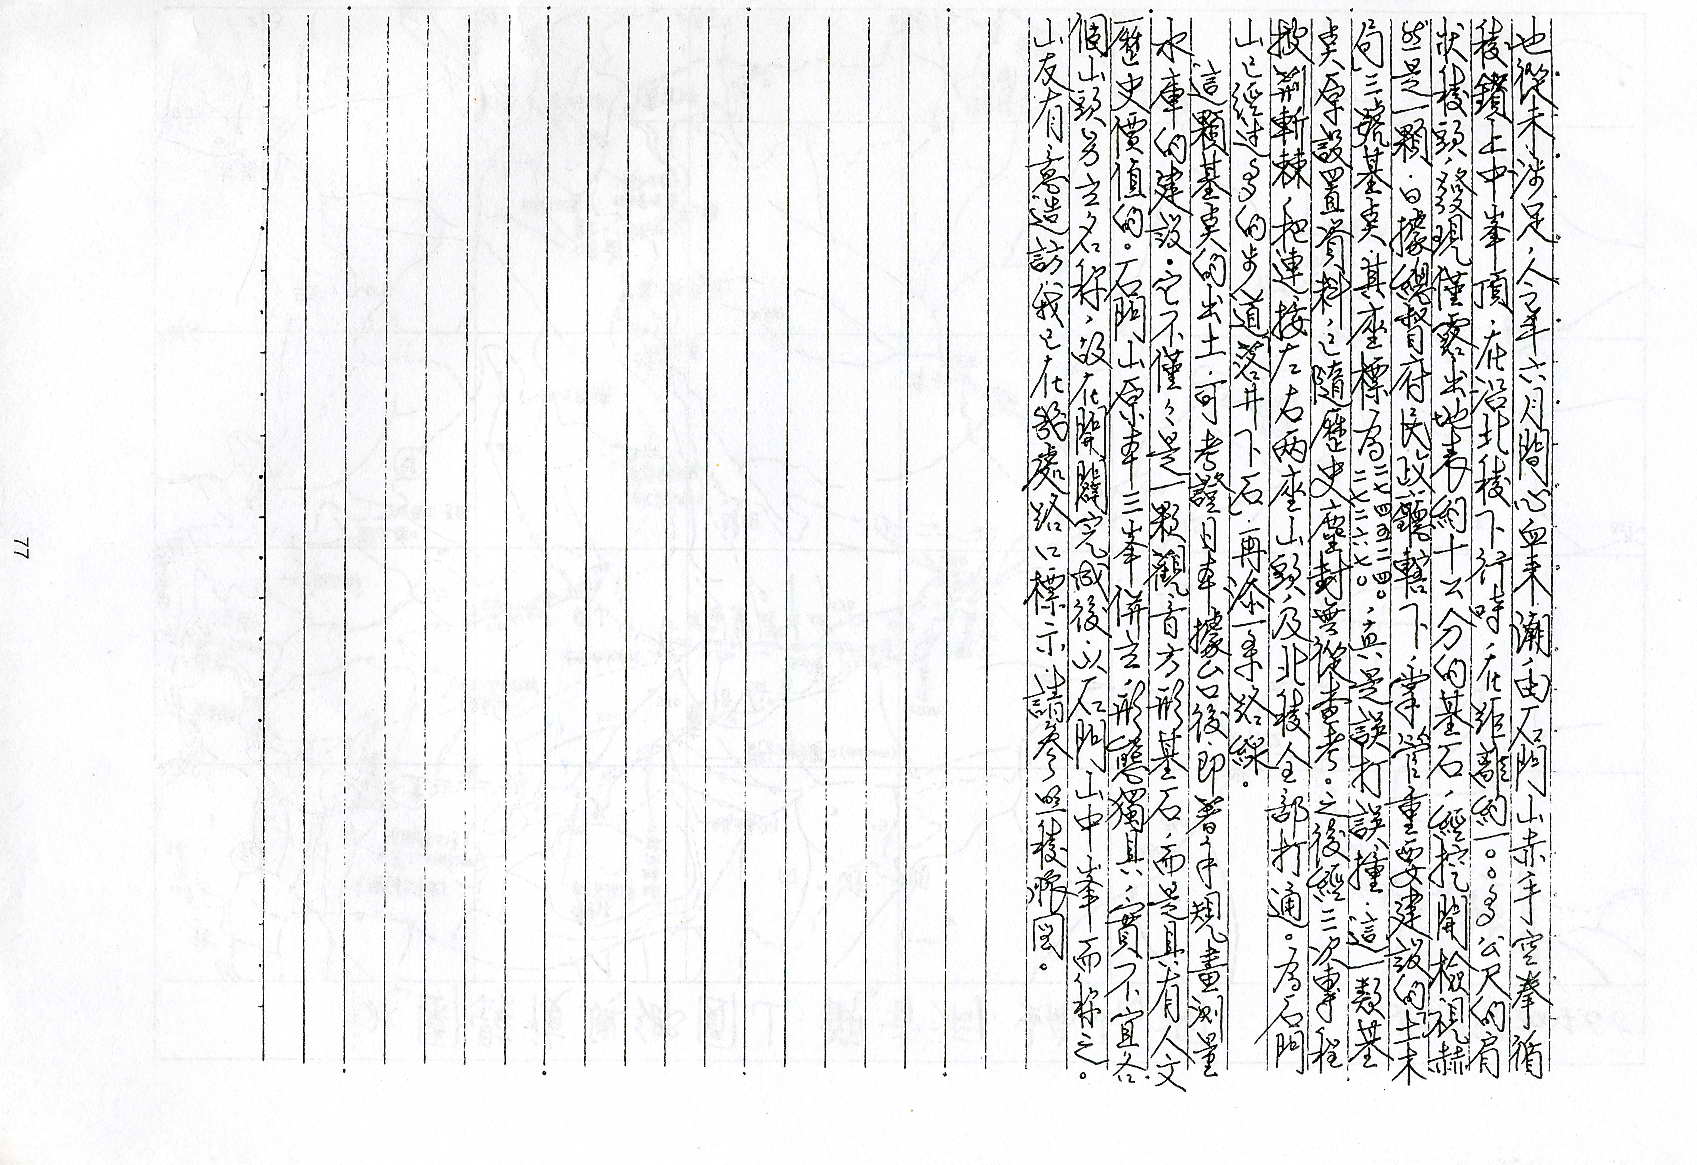 地從未涉足，今年六月間心血来潮由石門山赤手空拳循
稜鑽上中峯頂，在沿北稜下行時，在距離約一〇〇多公尺的肩
狀稜頭，發現僅露出地表約十公分的基石，經挖開檢視赫
然是一顆，日據總督府民政廳轄下，掌管重要建設的「土木
局」三號基奌，其座標為二七四五二四。二七二六七〇。，真是誤打誤撞，這一類基
奌原設置資料，已隨歷史塵封無從查考。之後經二次專程
披荊斬棘，把連接左右兩座山頭及北稜全部打通。為石門
山已經过多的步道，落井下石，再添一条路線。
這顆基奌的出土，可考證日本據台後即著手規畫測量
水庫的建設。它不僅々是一顆觀音方形基石，而是具有人文
歷史價值的。石門山原本三峯併立，形態獨具，實不宜各
個山頭另立名称，故在開闢完成後，以石門山中峯而称之。
山友有意造訪我已在各處路口標示請参照稜脈图。
77